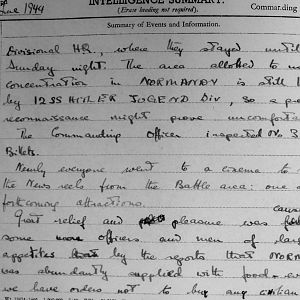 June 1944
INTELLIGENCE SUMMARY.
(Erase heading not required).
Commanding
Summary of Events and Information.
Divisional HQ, where they stayed until
Sunday night. The area allotted to
concentration in NORMANDY is still
by 12 SS HITLER JUGEND Div, so a
reconnaissance might prove
The Commanding Officer inspected No 3
Billets.
Nearly everyone went to a cinema to
the News reels from the Battle area: one
forthcoming attractions.
Great relief and pleasure was
some officers and men of
appetites by the reports that
was abundantly supplied with food
we have orders not to buy any